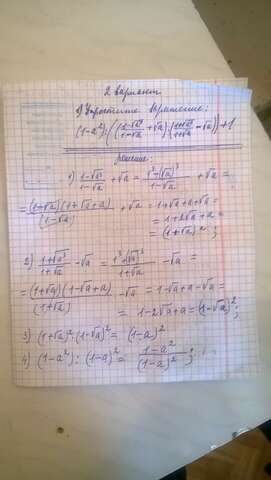 2 вариант
1) Упростите выражение:
(1-a²):((1-√a³/1-√a + √a)·(1+√a³/1+√a - √a))+1
Решение:
1) 1-√a³/1-√a + √a = 1³-(√a)³/1-√a + √a =
= (1-√a)(1+√a+a)/(1-√a) + √a = 1+√a+a+√a =
= 1+2√a+a =
= (1+√a)²;
2) 1+√a³/1+√a - √a = 1³+(√a)³/1+√a - √a =
= (1+√a)(1-√a+a)/(1+√a) - √a = 1-√a+a-√a =
= 1-2√a+a = (1-√a)²;
3) (1+√a)²·(1-√a)² = (1-a)²
4) (1-a²):(1-a)² = 1-a²/(1-a)²;